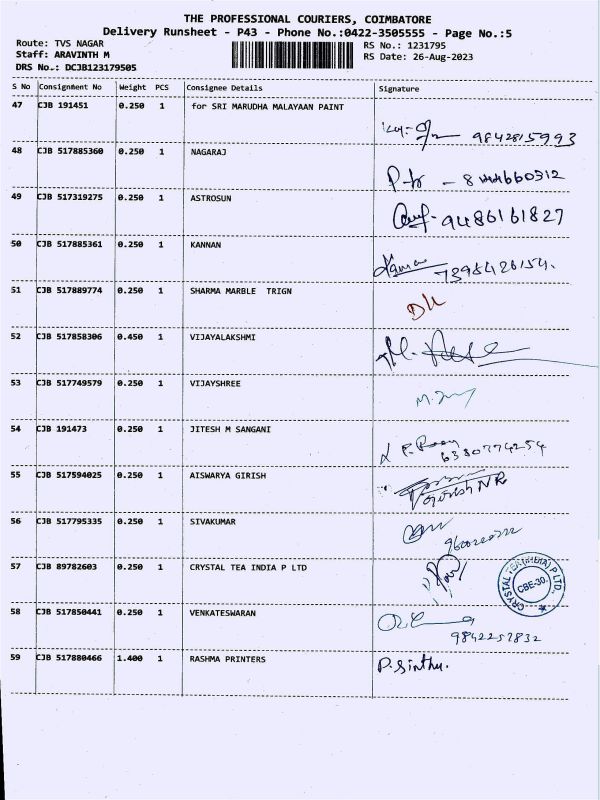 THE PROFESSIONAL COURIERS, COIMBATORE
Delivery Runsheet - P43 - Phone No.:0422-3505555 - Page No.:5
Route: TVS NAGAR RS No.: 1231795
Staff: ARAVINTH M RS Date: 26-Aug-2023
DRS No.: DCJB123179505
S No Consignment No Weight PCS Consignee Details Signature
47 CJB 191451 0.250 1 for SRI MARUDHA MALAYAAN PAINT
9842815993
48 CJB 517885360 0.250 1 NAGARAJ
49 CJB 517319275 0.250 1 ASTROSUN
9486161827
50 CJB 517885361 0.250 1 KANNAN
7398426154.
51 CJB 517889774 0.250 1 SHARMA MARBLE TRIGN
52 CJB 517858306 0.450 1 VIJAYALAKSHMI
53 CJB 517749579 0.250 1 VIJAYSHREE
54 CJB 191473 0.250 1 JITESH M SANGANI
6380774254
55 CJB 517594025 0.250 1 AISWARYA GIRISH
56 CJB 517795335 0.250 1 SIVAKUMAR
57 CJB 89782603 0.250 1 CRYSTAL TEA INDIA P LTD
CRYSTAL TEA (INDIA) P LTD.
CBE-30.
58 CJB 517850441 0.250 1 VENKATESWARAN
9842257832
59 CJB 517880466 1.400 1 RASHMA PRINTERS
P. Sinthu.